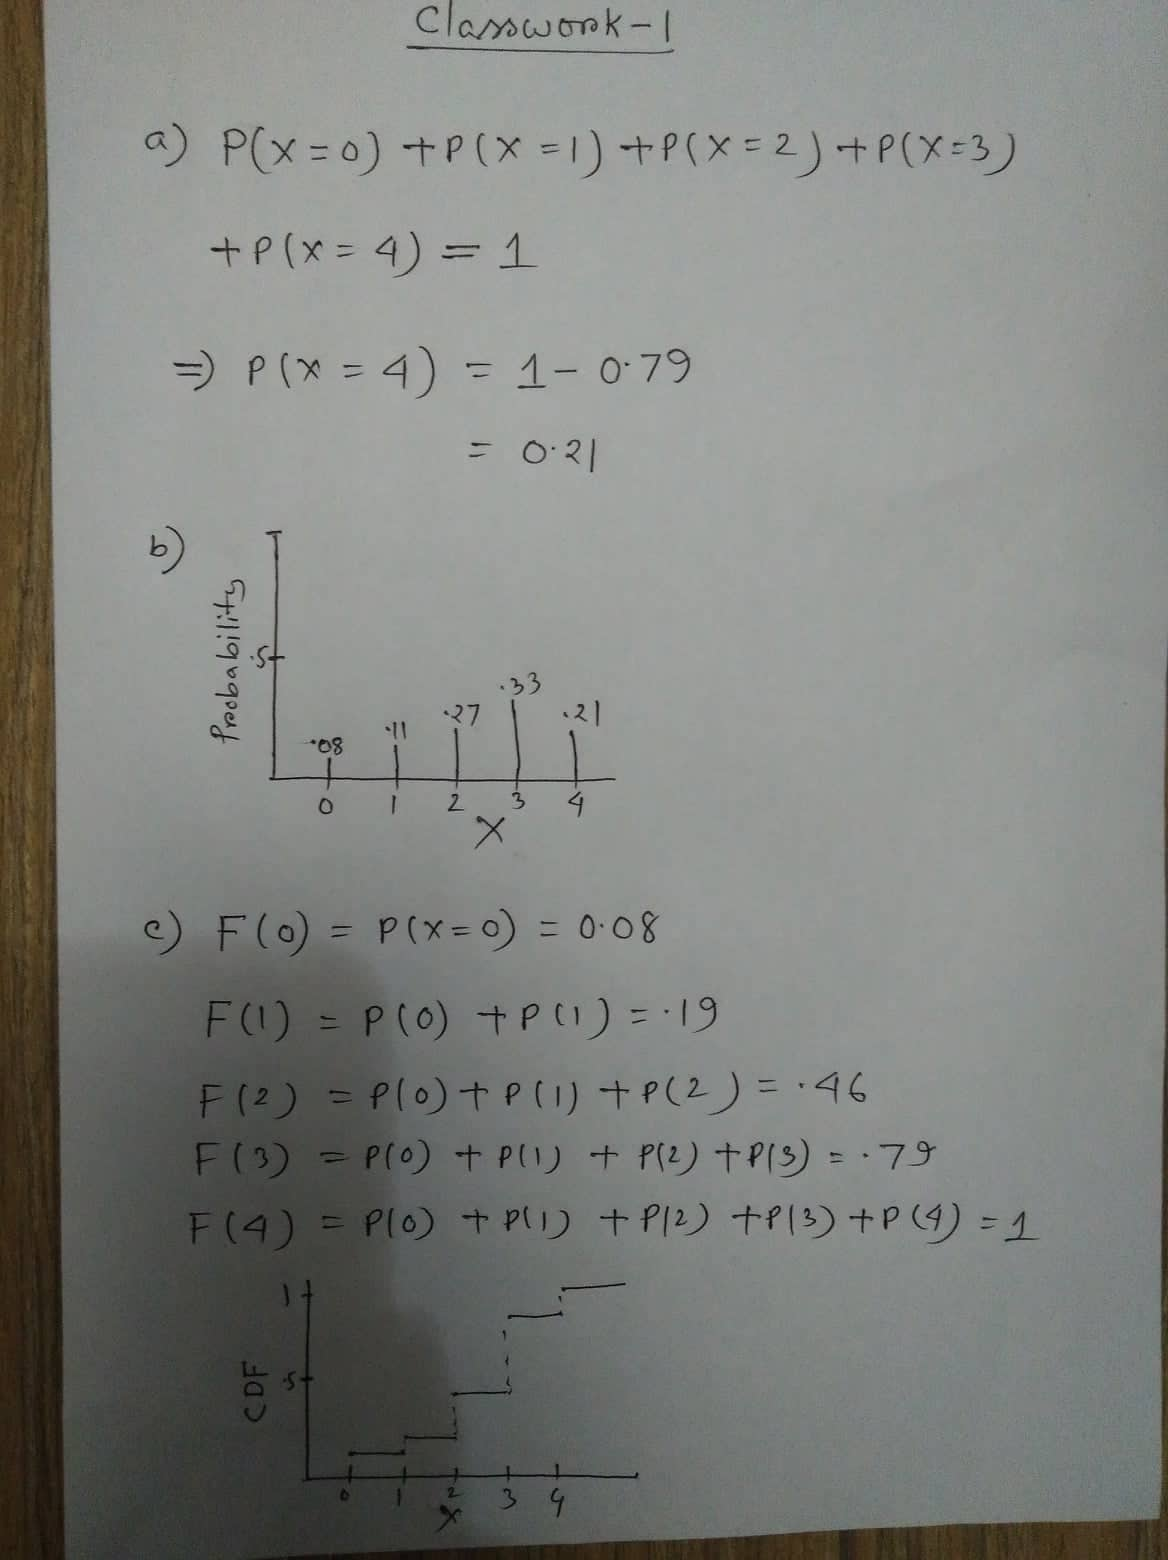 Classwork-1
a) P(X=0)+P(X=1)+P(X=2)+P(X=3)
+P(X=4)=1
⇒ P(X=4) = 1-0.79
= 0.21
b)
Probability
.5
.08 .11 .27 .33 .21
0 1 2 3 4
X
c) F(0) = P(X=0) = 0.08
F(1) = P(0) + P(1) = .19
F(2) = P(0) + P(1) + P(2) = .46
F(3) = P(0) + P(1) + P(2) + P(3) = .79
F(4) = P(0) + P(1) + P(2) + P(3) + P(4) = 1
1
CDF
.5
0 1 2 3 4
X